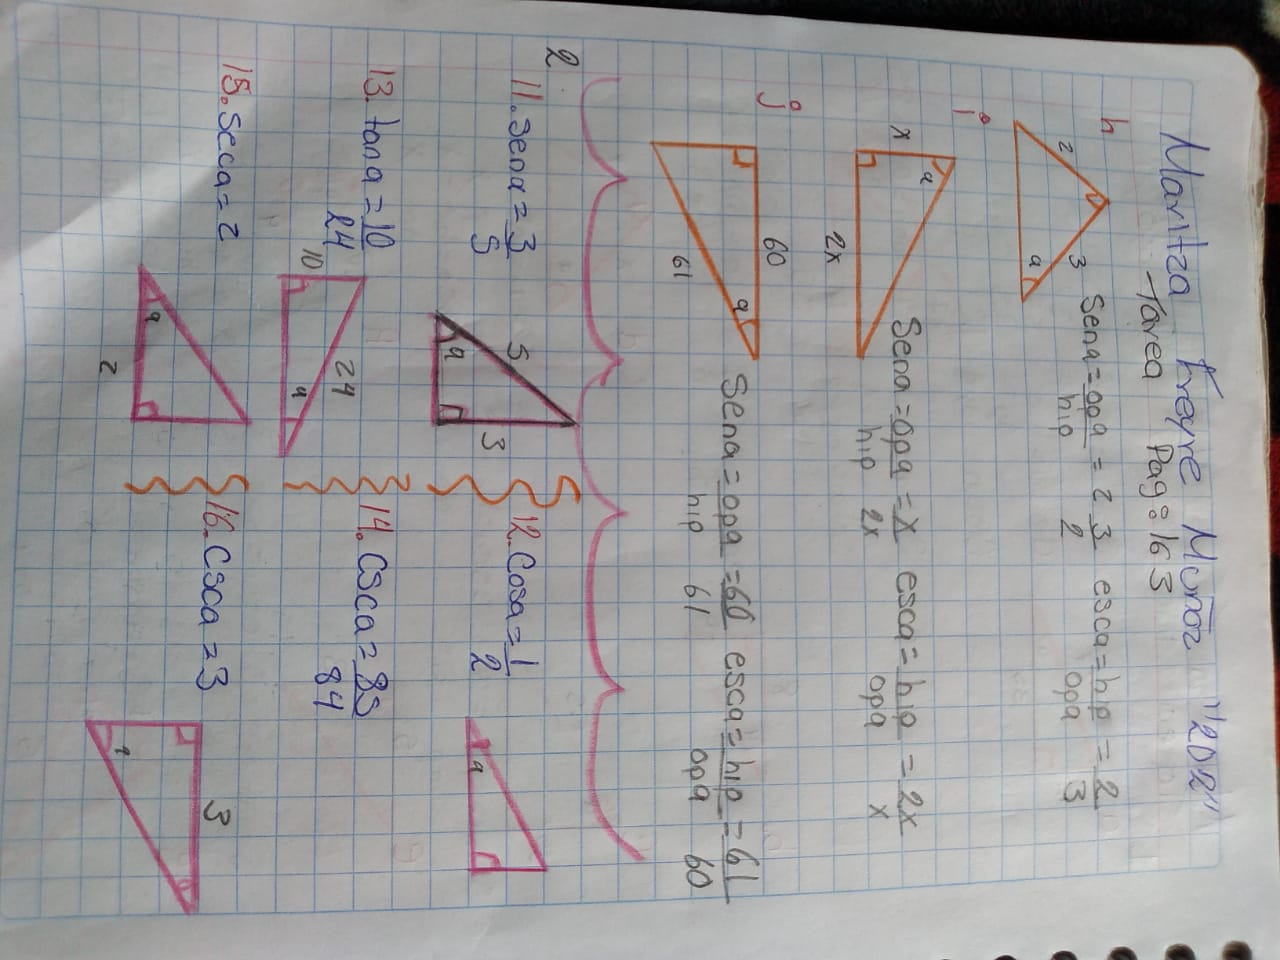 Maritza Freyre Muñoz "202"
Tarea Pag: 163
h
2
3
a
Sena = opa/hip = 2 3/2 esca = hip/opa = 2/3
i
x
a
2x
Sena = opa/hip = x/2x esca = hip/opa = 2x/x
j
60
61
a
Sena = opa/hip = 60/61 esca = hip/opa = 61/60
2
11. Sena = 3/5
5
3
a
12. Cosa = 1/2
a
13. tana = 10/24
10
24
a
14. Csca = 85/84
15. Seca = 2
a
2
16. Csca = 3
a
3